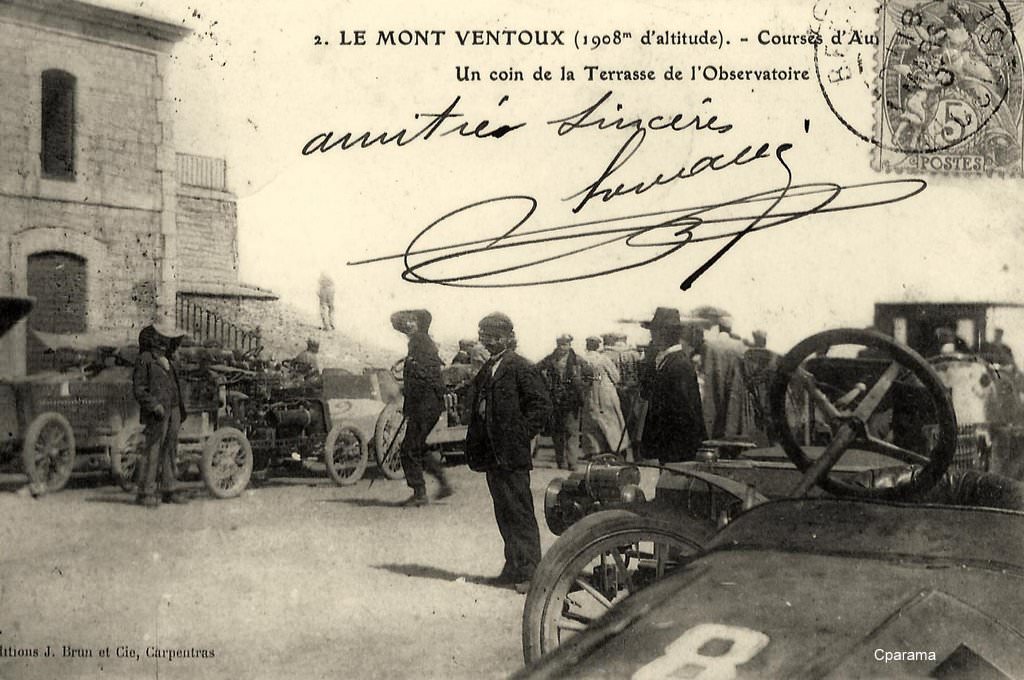 2. LE MONT VENTOUX (1908ᵐ d'altitude). - Courses d'Au
Un coin de la Terrasse de l'Observatoire
amitiés Sincéres
5
POSTES
2
8
ditions J. Brun et Cie, Carpentras
Cparama